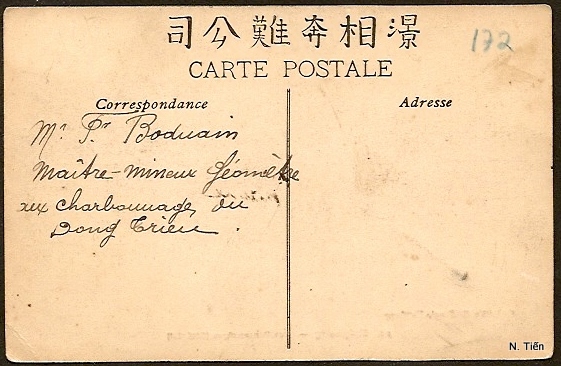 司公難奔相濃
172
CARTE POSTALE
Correspondance
Adresse
Mr Pr Boduain
Maître-mineur Géomètre
aux Charbonnages du
Dong Trieu.
N. Tiến